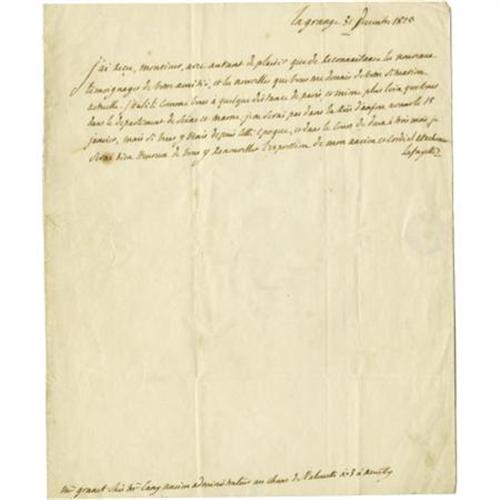 lagrange 31 Decembre
j'ai reçu, monsieur, avec autant de plaisir que de Reconnaissance les nouveaux
témoignages de votre amitié, et les nouvelles que vous me donnés de votre situation
actuelle. j'habite comme vous a quelque distance de paris, et même plus loin que vous
dans le departement de Seine et marne, j'en serai pas dans la avant le 15
janvier, mais si vous y venés depuis cette époque, et dans le cours de deux à trois mois je
serai bien heureux de vous y Renouveller l'expression de mon ancien et cordial attachement
Lafayette
Mr granet chés Mr Cany ancien administrateur au no 3 à neuilly